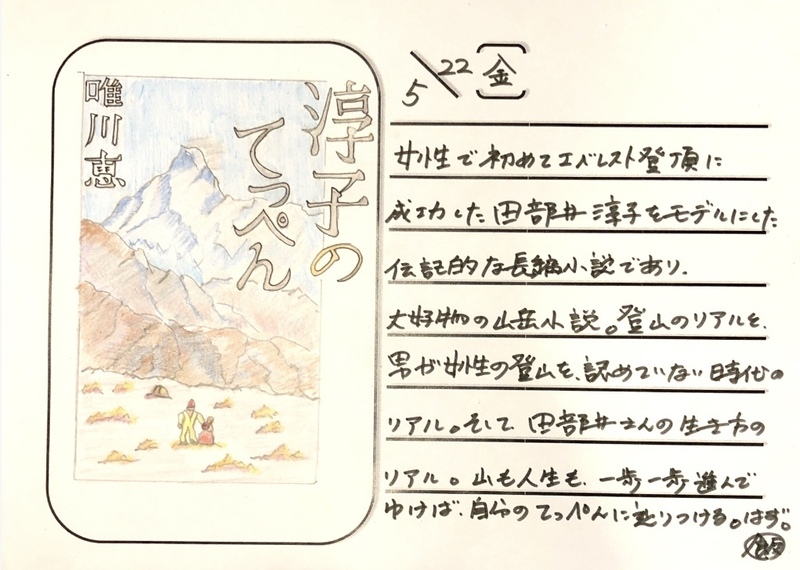 淳子の
てっぺん
唯川恵
5/22 金
女性で初めてエベレスト登頂に
成功した田部井淳子をモデルにした
伝記的な長編小説であり、
大好物の山岳小説。登山のリアルを、
男が女性の登山を、認めていない時代の
リアル。そして、田部井さんの生き方の
リアル。山も人生も、一歩一歩進んで
ゆけば、自分のてっぺんに辿りつける。はず。